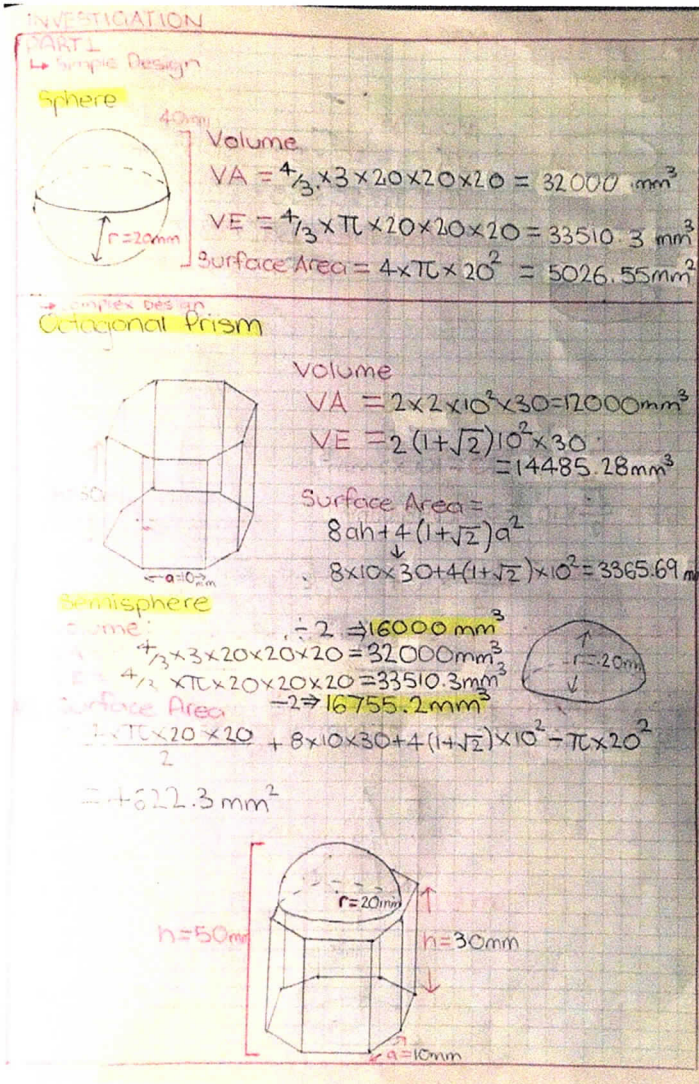 INVESTIGATION
PART 1
↳ Simple Design
Sphere
40mm
Volume
VA = 4/3 × 3 × 20 × 20 × 20 = 32000 mm³
VE = 4/3 × π × 20 × 20 × 20 = 33510.3 mm³
r = 20mm
Surface Area = 4 × π × 20² = 5026.55mm²
→ Complex Design
Octagonal Prism
Volume
VA = 2 × 2 × 10² × 30 = 12000mm³
VE = 2 (1+√2) 10² × 30
= 14485.28mm³
Surface Area =
8ah + 4 (1+√2) a²
↓
8×10×30+4(1+√2)×10² = 3365.69 m
a=10mm
Hemisphere
÷ 2 ⇒ 16000 mm³
4/3 × 3 × 20 × 20 × 20 = 32000mm³
r = 20mm
× π × 20 × 20 × 20 = 33510.3mm³
Surface Area
÷2⇒ 16755.2mm³
× π × 20 × 20 / 2 + 8×10×30+4(1+√2)×10² − π×20²
= 4622.3 mm²
r = 20mm
h = 50mm
h = 30mm
a = 10mm